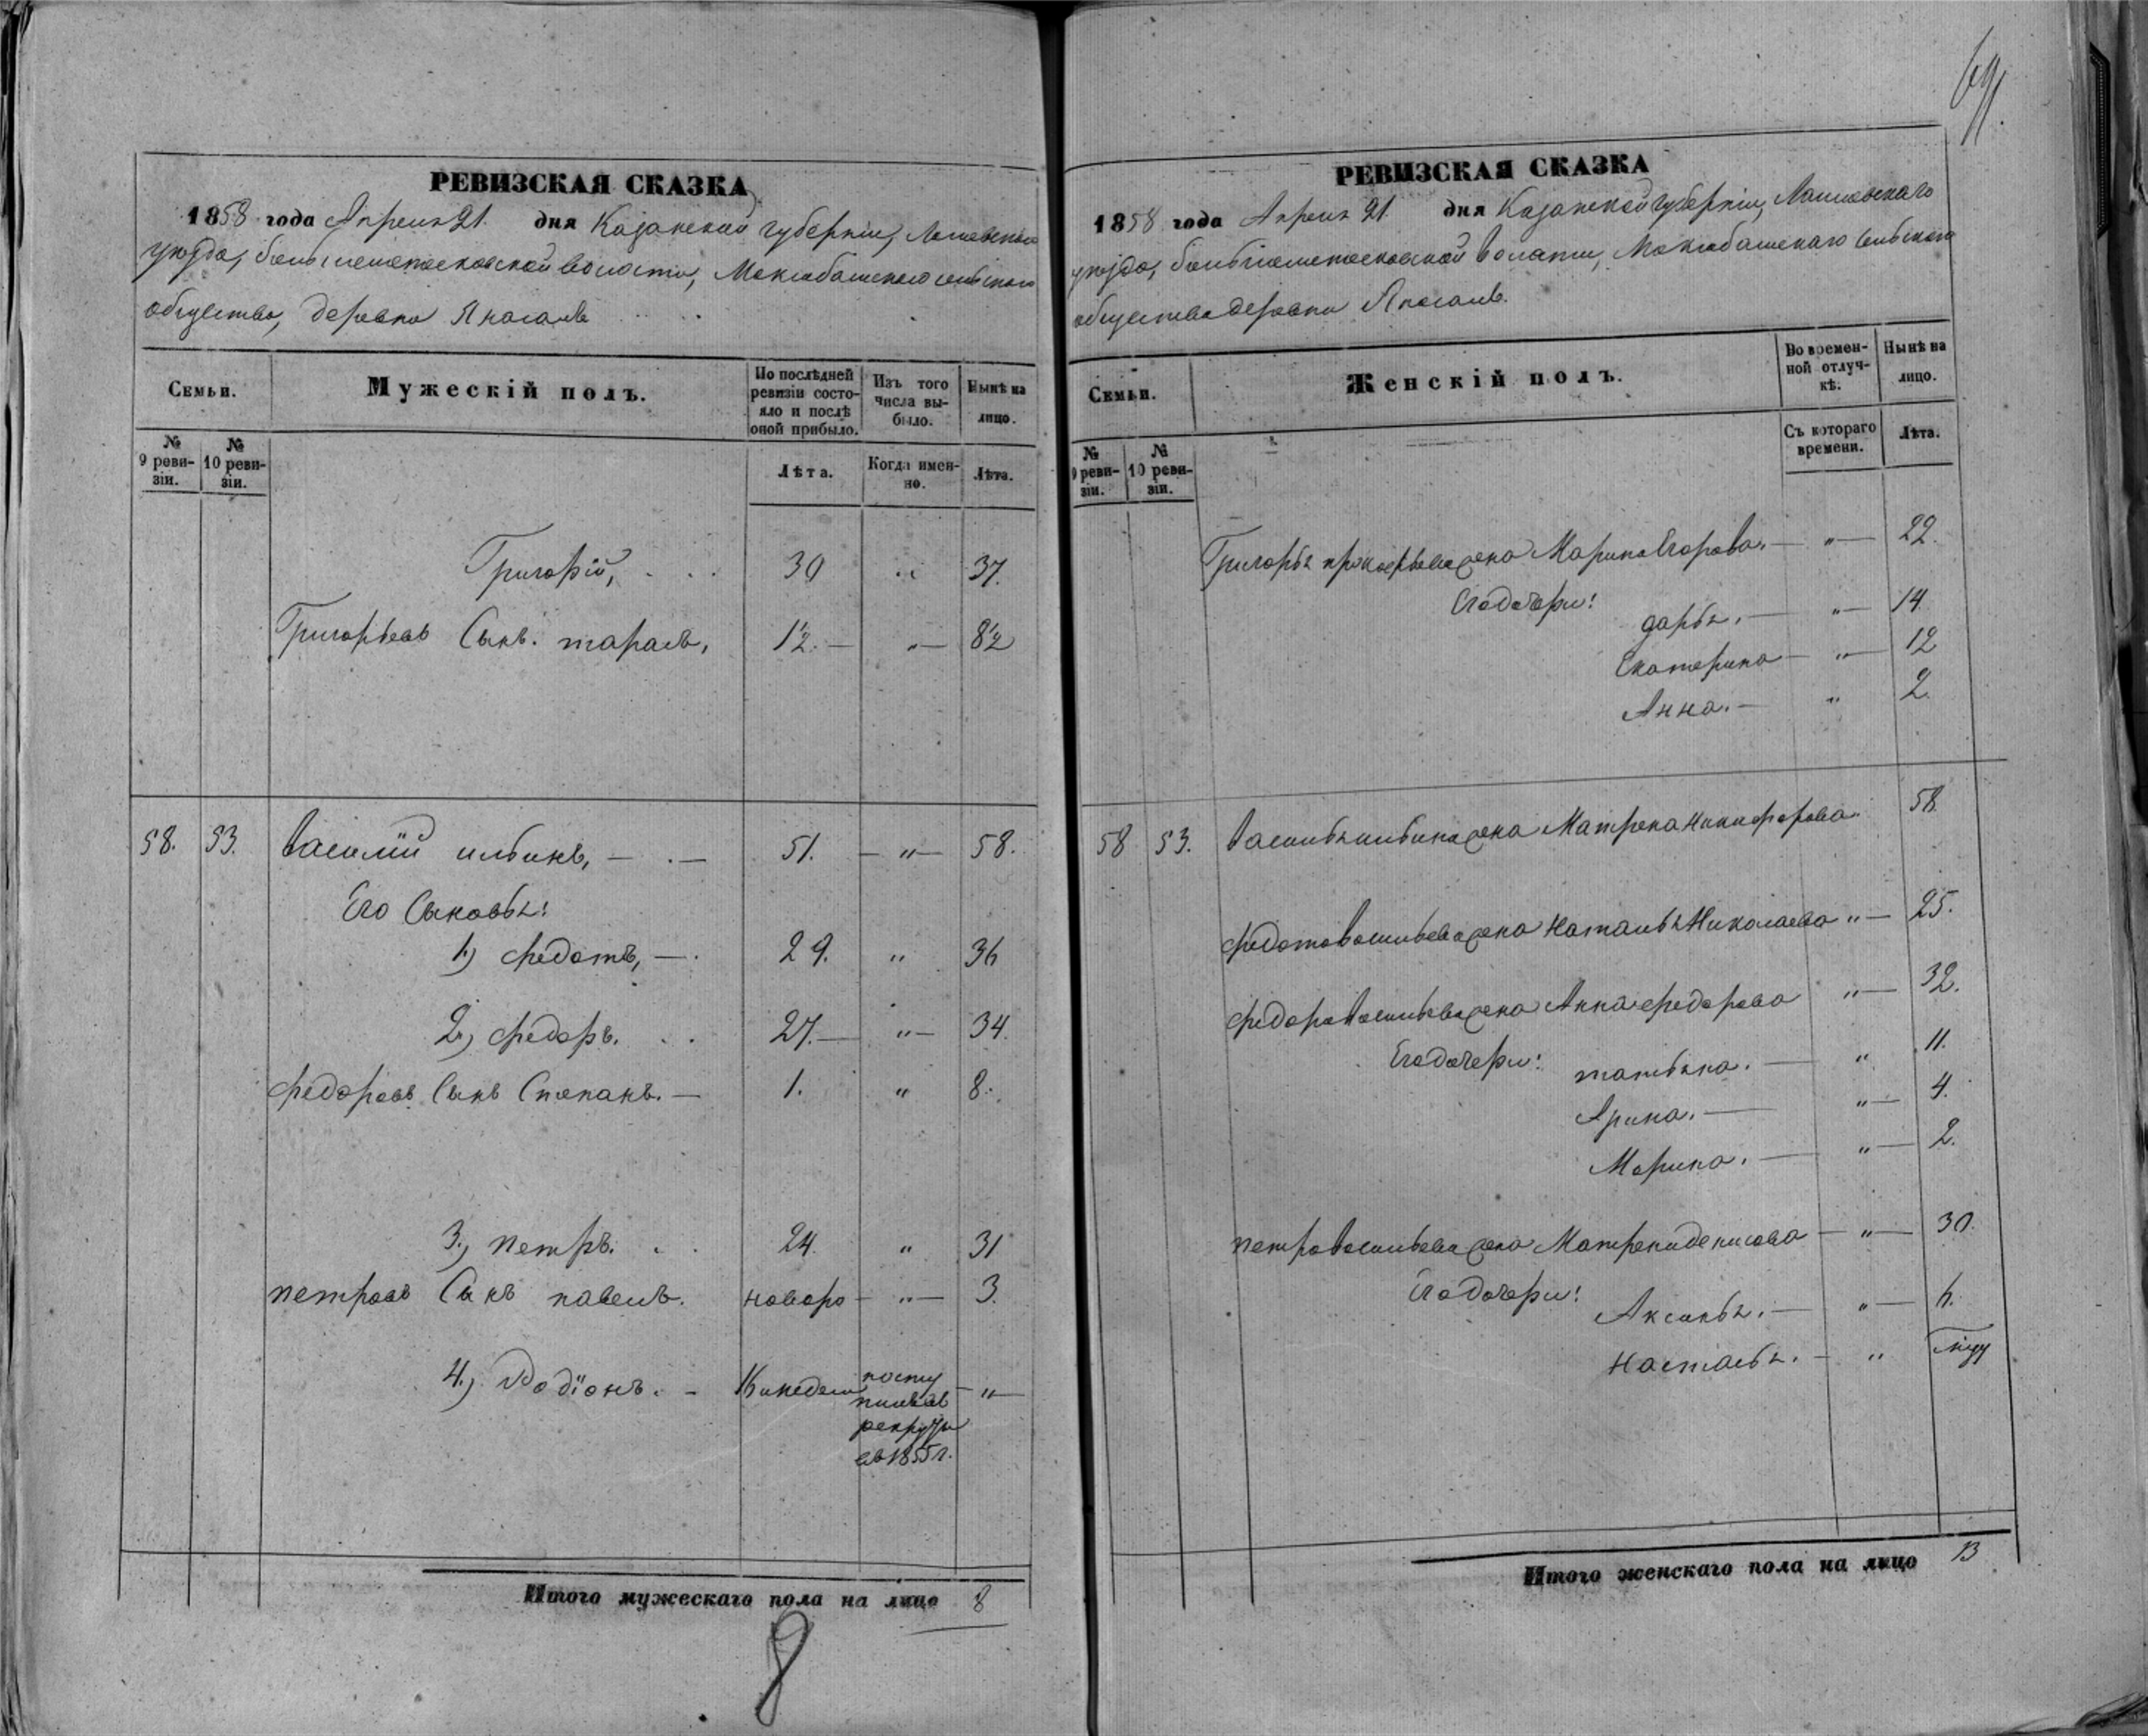 РЕВИЗСКАЯ СКАЗКА
1858 года Апреля 21. дня Казанской губерніи, Лаишевскаго
уезда, волости, Моксобашскаго сельскаго
общества, деревни Янасалъ
Семьи.
Мужескій полъ.
По послѣдней ревизіи состояло и послѣ оной прибыло.
Изъ того числа выбыло.
Нынѣ на лицо.
№ 9 ревизіи.
№ 10 ревизіи.
Лѣта.
Когда именно.
Лѣта.
Григорій, 30 " 37.
Григорьевъ Сынъ. тарасъ, 1½ — " — 8½
58. 53. Василій ильинъ, — 51. — " — 58.
Его Сыновья:
1.) федотъ, — 29. " 36
2.) федоръ. 27. — " — 34.
федоровъ Сынъ Степанъ. — 1. " 8.
3.) петръ. 24. " 31
петровъ Сынъ павелъ. новоро — " — 3.
4.) Родіонъ. — 16 недель поступилъ въ рекруты въ 1855 г. — " —
Итого мужескаго пола на лицо 8
8
69.
РЕВИЗСКАЯ СКАЗКА
1858 года Апреля 21. дня Казанской губерніи, Лаишевскаго
уезда, волости, Моксобашскаго сельскаго
общества деревни Янасалъ.
Семьи.
Женскій полъ.
Во временной отлучкѣ.
Нынѣ на лицо.
№ 9 ревизіи.
№ 10 ревизіи.
Съ котораго времени.
Лѣта.
Григорья прокофьева жена Марина Егорова. — " — 22.
Его дочери:
дарья. — " — 14.
Екатерина — " — 12
Анна. — " 2.
58 53. Василья ильина жена Матрена никифорова. 58.
федота васильева жена наталья Николаева " — 25.
федора васильева жена Анна федорова " — 32.
Его дочери: татьяна. — " 11.
Арина. — " — 4.
Марина. — " — 2.
петра васильева жена Матрена денисова — " — 30.
Его дочери:
Аксинья. — " — 6.
настасья. — " году
Итого женскаго пола на лицо 13